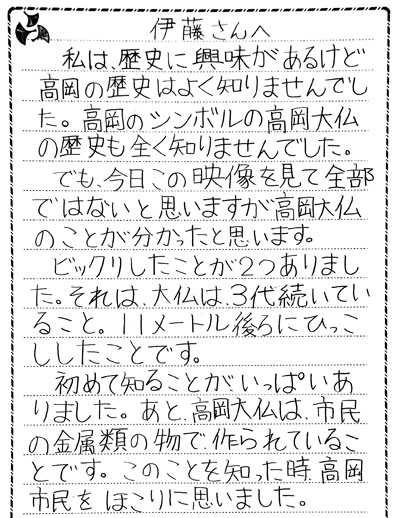 伊藤さんへ
私は、歴史に興味があるけど
高岡の歴史はよく知りませんでし
た。高岡のシンボルの高岡大仏
の歴史も全く知りませんでした。
でも、今日この映像を見て全部
ではないと思いますが高岡大仏
のことが分かったと思います。
ビックリしたことが2つありまし
た。それは、大仏は、3代続いてい
ること。11メートル後ろにひっこ
ししたことです。
初めて知ることがいっぱいあ
りました。あと、高岡大仏は、市民
の金属類の物で作られているこ
とです。このことを知った時、高岡
市民をほこりに思いました。